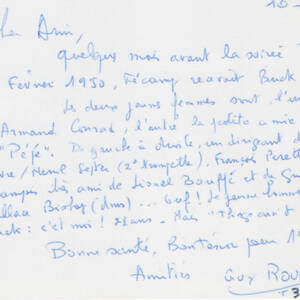 10-
Cher Ami,
quelques mois avant la soirée
Février 1950, Fécamp recevait Buck
les deux jeunes femmes sont, l'un
Armand Conrad, l'autre la petite amie
"Pépé". De gauche à droite, un dirigeant d
(2e trompette), François
ami de Lionel Bouffé et de Gu
Bishop (dms) ... Ouf! Le jeune homme
c'est moi! 21 ans. Mais "Things ain't
Bonne santé, pour 1
Amitiés Guy Rou
T3